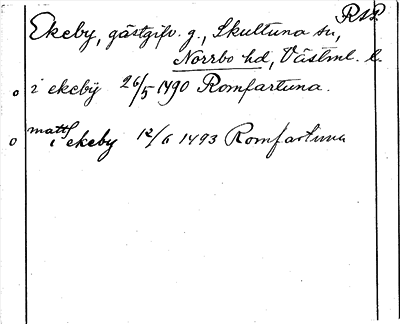 RAP.
Ekeby, gästgifv. g., Skultuna sn,
Norrbo hd, Västml. l.
o i ekeby 26/5 1490 Romfartuna.
o matts i ekeby 12/6 1493 Romfartuna